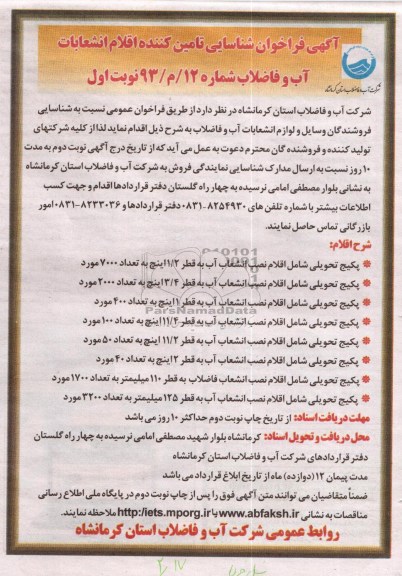 آگهی فراخوان شناسایی تامین کننده اقلام انشعابات
آب و فاضلاب شماره ۱۲/م/۹۳ نوبت اول
شرکت آب و فاضلاب استان کرمانشاه
شرکت آب و فاضلاب استان کرمانشاه در نظر دارد از طریق فراخوان عمومی نسبت به شناسایی
فروشندگان وسایل و لوازم انشعابات آب و فاضلاب به شرح ذیل اقدام نماید لذا از کلیه شرکتهای
تولید کننده و فروشنده گان محترم دعوت به عمل می آید که از تاریخ درج آگهی نوبت دوم به مدت
۱۰ روز نسبت به ارسال مدارک شناسایی نمایندگی فروش به شرکت آب و فاضلاب استان کرمانشاه
به نشانی بلوار مصطفی امامی نرسیده به چهار راه گلستان دفتر قراردادها اقدام و جهت کسب
اطلاعات بیشتر با شماره تلفن های ۸۲۵۴۹۳۰-۰۸۳۱ دفتر قراردادها و ۸۲۳۳۰۳۶-۰۸۳۱ امور
بازرگانی تماس حاصل نمایند.
شرح اقلام:
پکیج تحویلی شامل اقلام نصب انشعاب آب به قطر ۱/۲ اینچ به تعداد ۷۰۰۰ مورد
پکیج تحویلی شامل اقلام نصب انشعاب آب به قطر ۳/۴ اینچ به تعداد ۲۰۰۰ مورد
پکیج تحویلی شامل اقلام نصب انشعاب آب به قطر ۱ اینچ به تعداد ۴۰۰ مورد
پکیج تحویلی شامل اقلام نصب انشعاب آب به قطر ۱۱/۴ اینچ به تعداد ۱۰۰ مورد
پکیج تحویلی شامل اقلام نصب انشعاب آب به قطر ۱۱/۲ اینچ به تعداد ۵۰ مورد
پکیج تحویلی شامل اقلام نصب انشعاب آب به قطر ۲ اینچ به تعداد ۴۰ مورد
پکیج تحویلی شامل اقلام نصب انشعاب فاضلاب به قطر ۱۱۰ میلیمتر به تعداد ۱۷۰۰ مورد
پکیج تحویلی شامل اقلام نصب انشعاب آب به قطر ۱۲۵ میلیمتر به تعداد ۳۲۰۰ مورد
مهلت دریافت اسناد: از تاریخ چاپ نوبت دوم حداکثر ۱۰ روز می باشد
محل دریافت و تحویل اسناد: کرمانشاه بلوار شهید مصطفی امامی نرسیده به چهار راه گلستان
دفتر قراردادهای شرکت آب و فاضلاب استان کرمانشاه
مدت پیمان ۱۲ (دوازده) ماه از تاریخ ابلاغ قرارداد می باشد
ضمنا متقاضیان می توانند متن آگهی فوق را پس از چاپ نوبت دوم در پایگاه ملی اطلاع رسانی
مناقصات به نشانی www.abfaksh.ir یا http://iets.mporg.ir ملاحظه نمایند.
روابط عمومی شرکت آب و فاضلاب استان کرمانشاه